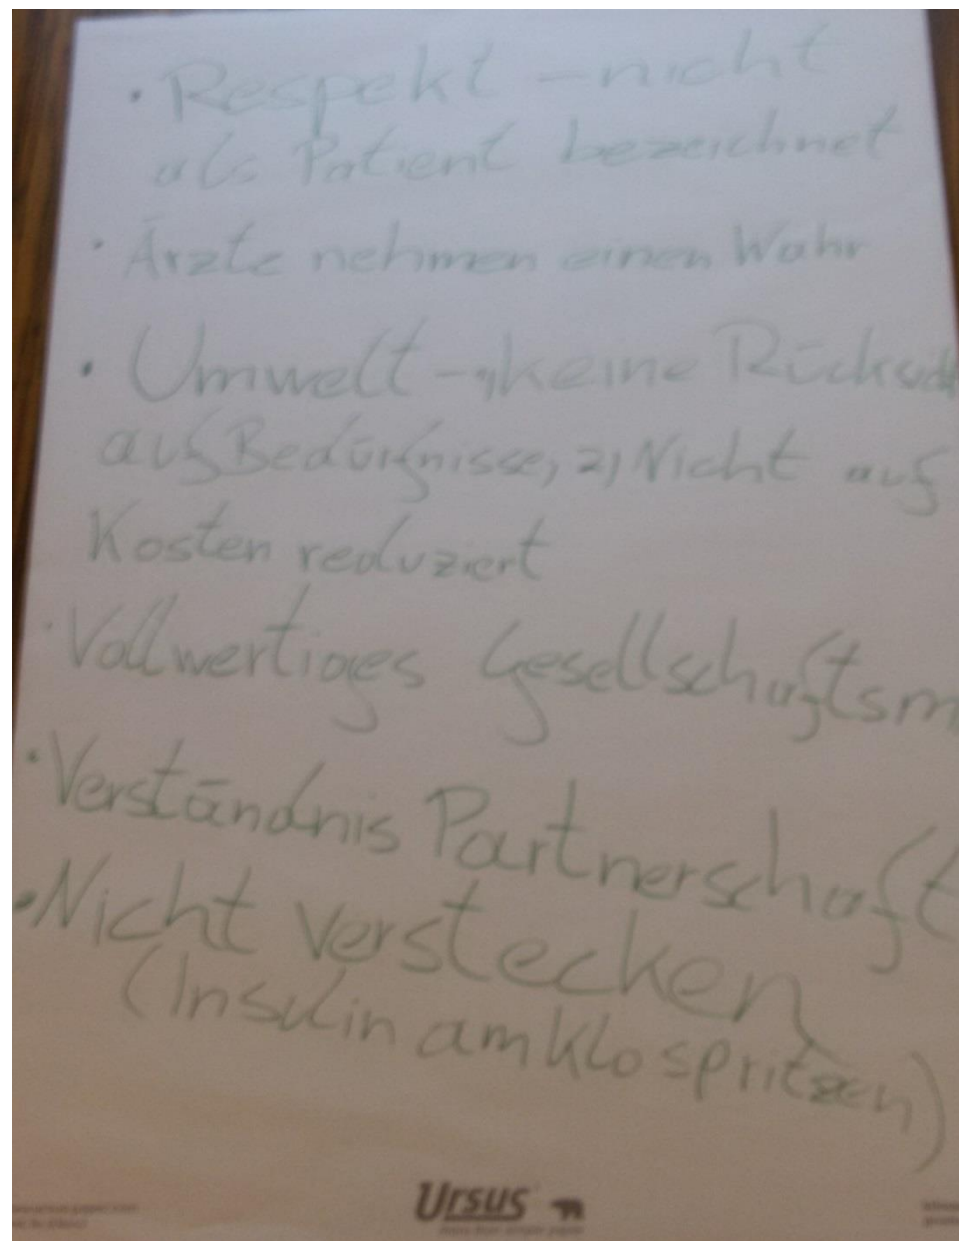 • Respekt – nicht
als Patient bezeichnet
• Ärzte nehmen einen Wahr
• Umwelt – 1) keine Rücksicht
auf Bedürfnisse, 2) Nicht auf
Kosten reduziert
• Vollwertiges Gesellschaftsm
• Verständnis Partnerschaft
• Nicht verstecken
(Insulin am Klo spritzen)
Ursus